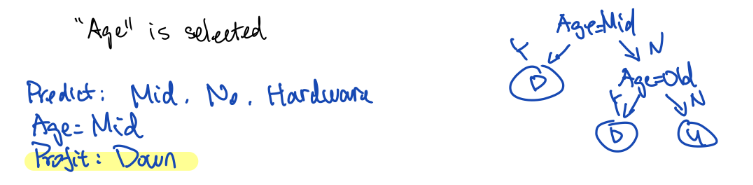 "Age" is selected
Predict: Mid, No, Hardware
Age=Mid
Profit: Down
Age=Mid
Y N
D Age=Old
Y N
D U